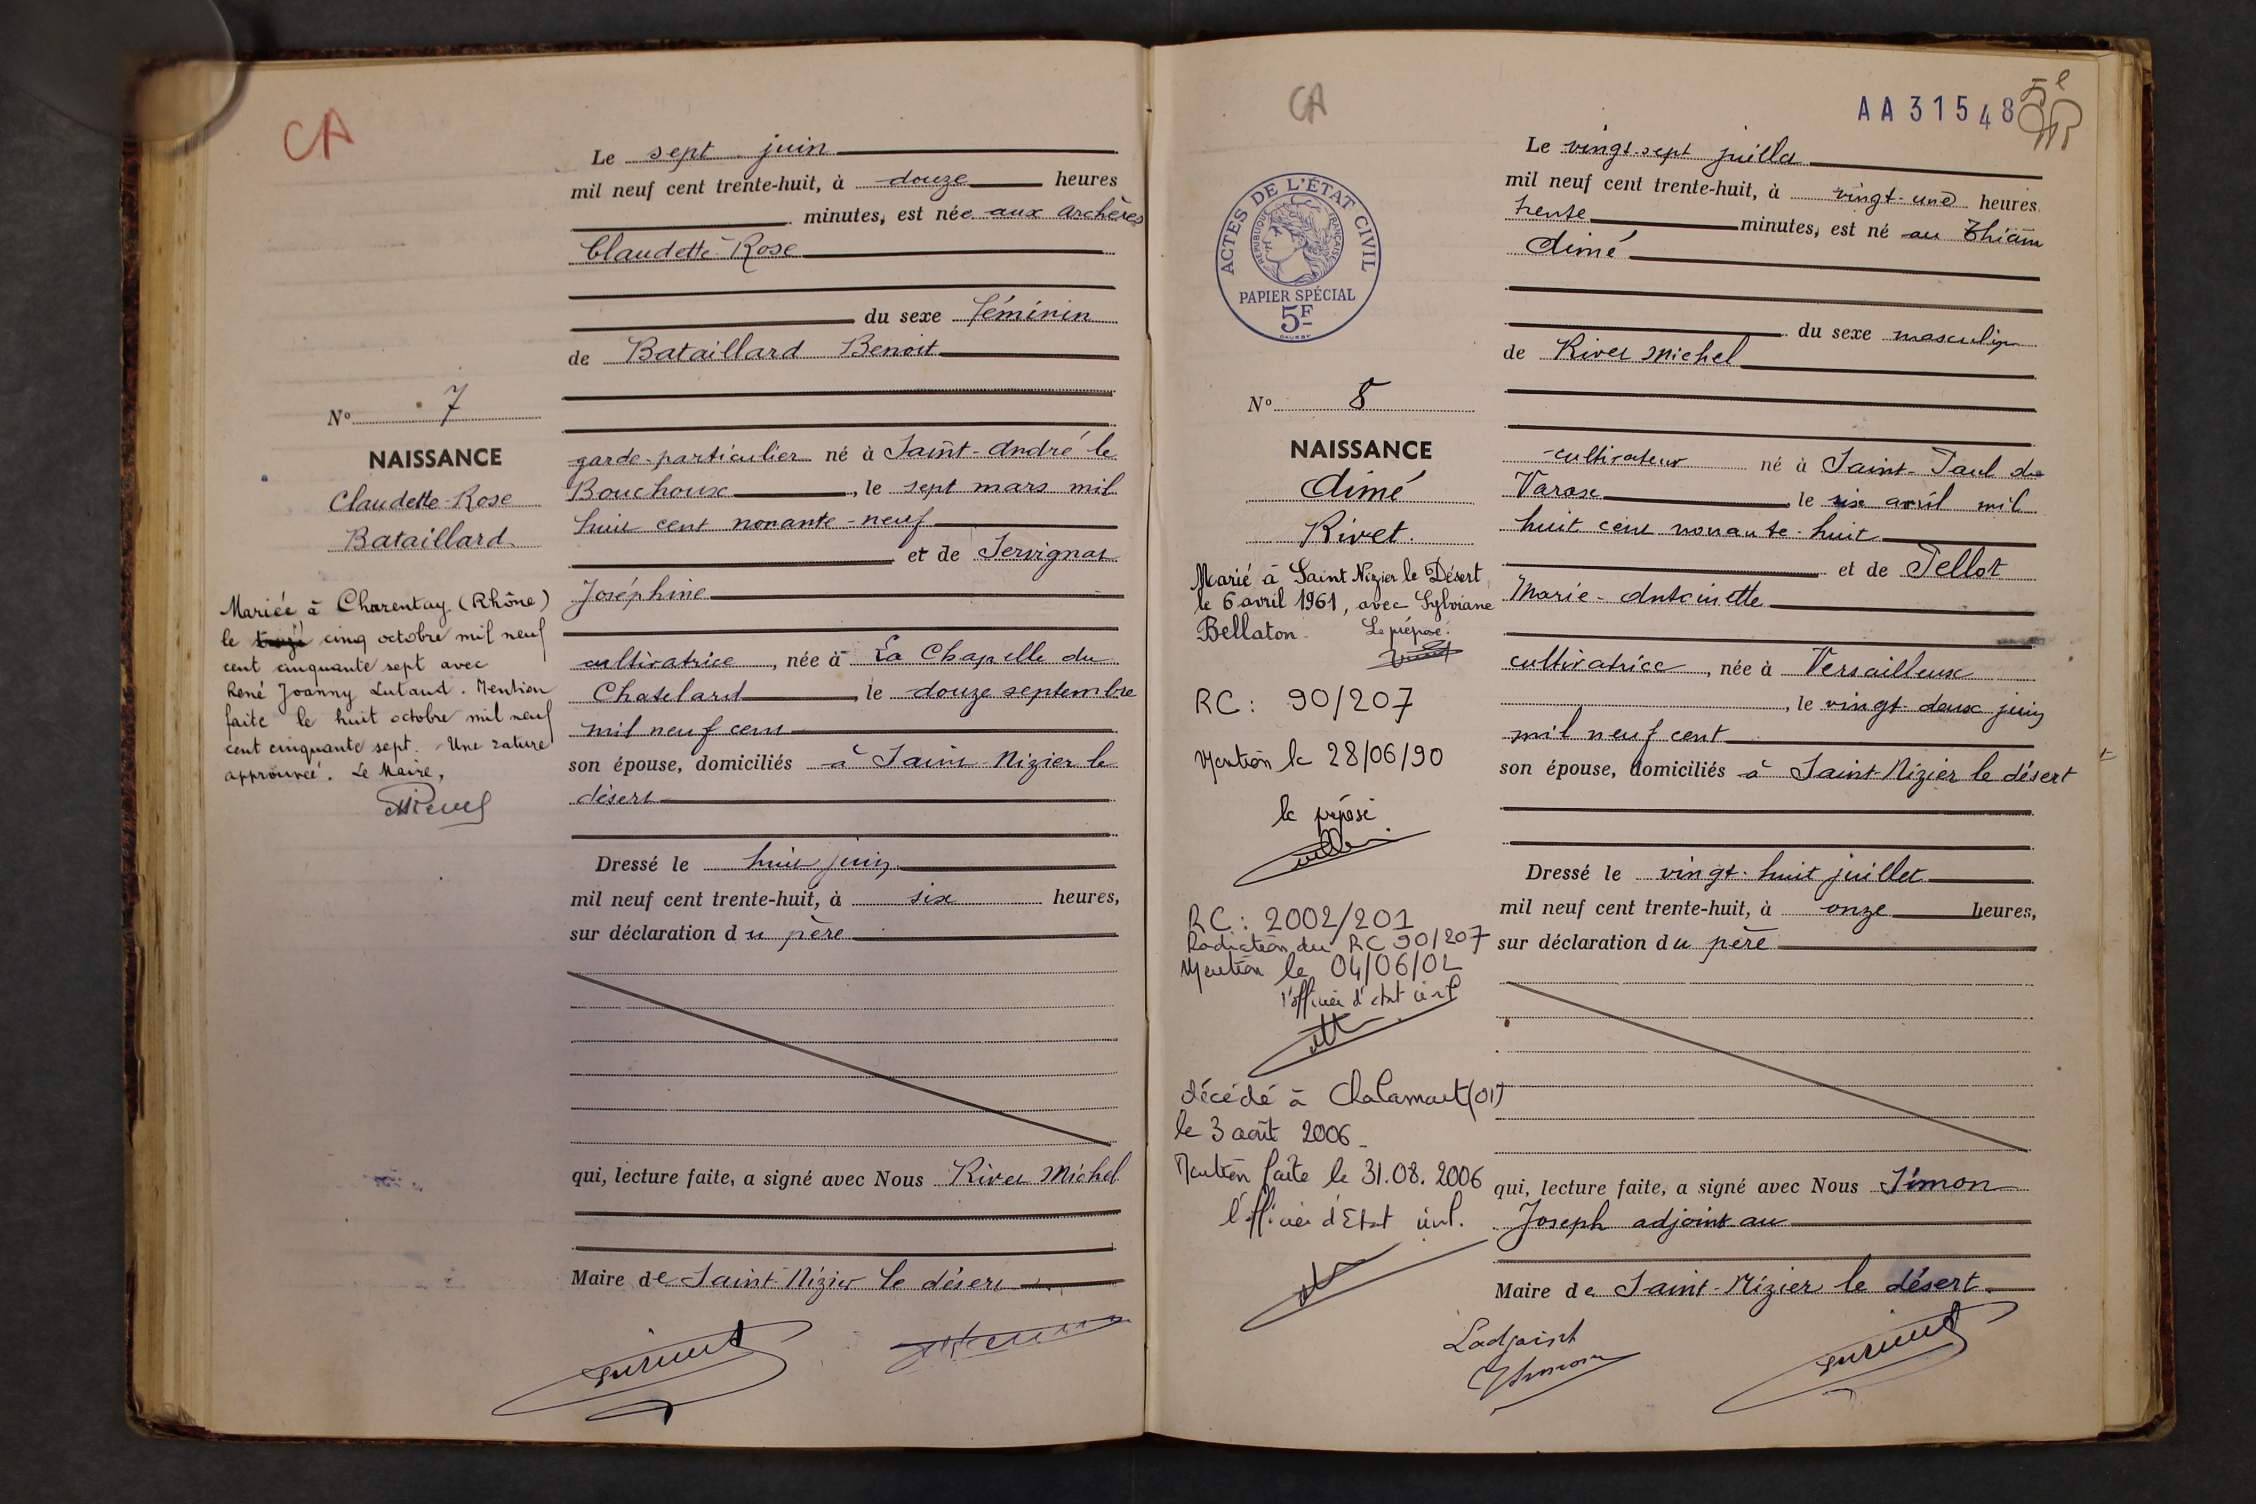 CA
Le sept juin
mil neuf cent trente-huit, à douze heures
minutes, est née aux archères
Claudette-Rose
du sexe féminin
de Bataillard Benoit
N° 7
NAISSANCE
Claudette-Rose
Bataillard
garde-particulier né à Saint-André le
Bouchoux, le sept mars mil
huit cent nonante-neuf
et de Servignat
Joséphine
cultivatrice, née à La Chapelle du
Chatelard, le douze septembre
mil neuf cent
son épouse, domiciliés à Saint Nizier le
désert
Mariée à Charentay (Rhône)
le cinq octobre mil neuf
cent cinquante sept avec
René Joanny Lutaud. Mention
faite le huit octobre mil neuf
cent cinquante sept. Une rature
approuvée. Le Maire,
Dressé le huit juin
mil neuf cent trente-huit, à six heures,
sur déclaration du père
qui, lecture faite, a signé avec Nous Rivet Michel
Maire de Saint-Nizier le désert
CA
AA 31548
ACTES DE L'ÉTAT CIVIL
RÉPUBLIQUE FRANÇAISE
PAPIER SPÉCIAL
5F
Le vingt-sept juillet
mil neuf cent trente-huit, à vingt-une heures
trente minutes, est né au
Aimé
du sexe masculin
de Rivet Michel
N° 8
NAISSANCE
Aimé
Rivet.
cultivateur né à Saint-Paul de
Varax, le six avril mil
huit cent nonante-huit
et de Pellot
Marie-Antoinette
cultivatrice, née à Versailleux
, le vingt-deux juin
mil neuf cent
son épouse, domiciliés à Saint-Nizier le désert
Marié à Saint Nizier le Désert
le 6 avril 1961, avec Sylviane
Bellaton. Le préposé:
RC: 90/207
Mention le 28/06/90
le préposé
RC: 2002/201
Radiation du RC 90/207
Mention le 04/06/02
l'officier d'état civil
décédé à Chalamont (01)
le 3 août 2006.
Mention faite le 31.08.2006
l'officier d'Etat civil.
Dressé le vingt-huit juillet
mil neuf cent trente-huit, à onze heures,
sur déclaration du père
qui, lecture faite, a signé avec Nous Simon
Joseph adjoint au
Maire de Saint-Nizier le désert
L'adjoint
JSimon